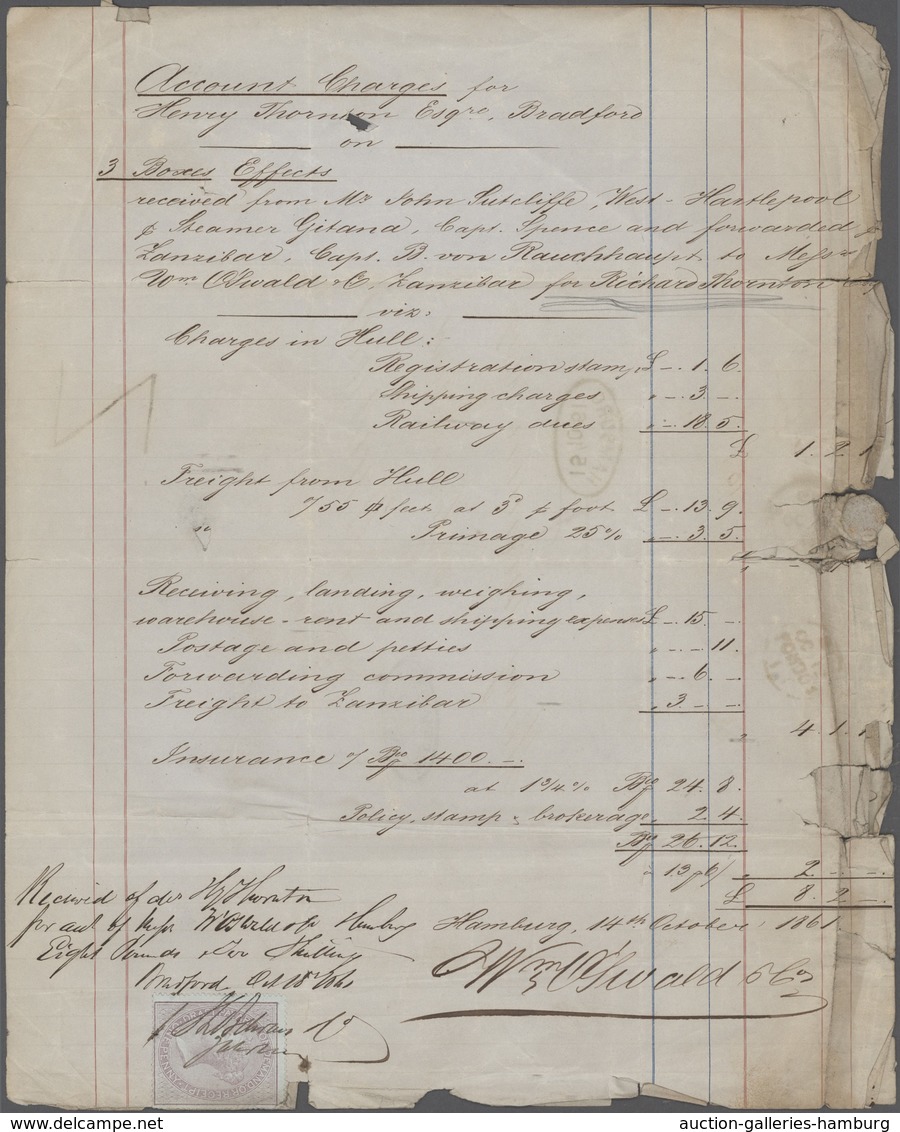 Account Charges for
Henry Thornton Esqre, Bradford
on
3 Boxes Effects
received from Mr John Sutcliffe, West-Hartlepool
p Steamer Gitana, Capt. Spence and forwarded p
Zanzibar, Capt. B. von Rauchhaupt to Messrs
Wm O'Swald & C. Zanzibar for Richard Thornton Esq
viz:
Charges in Hull:
Registration stamp £ -. 1. 6.
Shipping charges " -. 3. -.
Railway dues " -. 18. 5.
£ 1. 2. 1
Freight from Hull
o/55 feet at 3d p foot £ -. 13. 9.
Primage 25% " -. 3. 5.
Receiving, landing, weighing,
warehouse-rent and shipping expenses £ -. 15. -
Postage and petties " -. -. 11.
Forwarding commission " -. 6. -.
Freight to Zanzibar " 3. -. -.
" 4. 1. 1
Insurance o/ Bco 1400. -.
at 1 3/4 % Bco 24. 8.
Policy, stamp & brokerage " 2. 4.
Bco 26. 12.
à 13 " 2. -. -.
£ 8. 2. -.
Received of H Thornton
for of Messrs Wm OSwald & Co Hamburg
Eight Pounds & Two Shillings
Bradford Oct 18 1861
Hamburg, 14th October 1861
Wm O'Swald & Co
15 OC 61